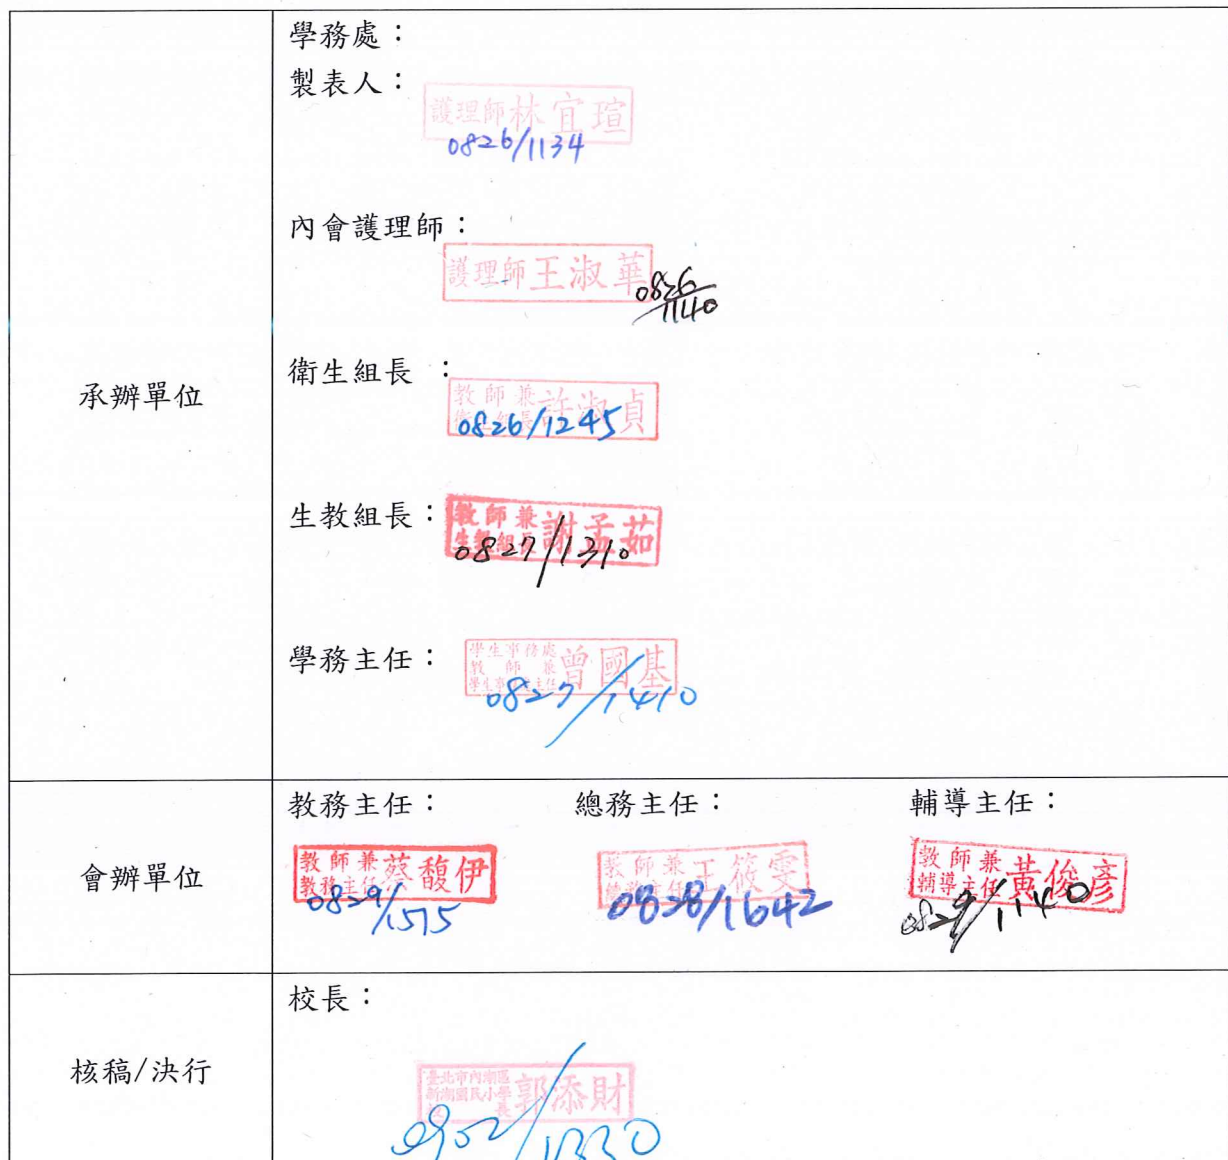 學務處：
製表人：
護理師林宜瑄
0826/1134
內會護理師：
護理師王淑華
0826/1140
承辦單位
衛生組長 ：
教師兼
衛生組長許淑貞
0826/1245
生教組長：
教師兼
生教組長謝孟茹
0827/1310
學務主任：
學生事務處
教師兼
學生事務主任曾國基
0827/1410
會辦單位
教務主任：
教師兼
教務主任蔡馥伊
0829/1515
總務主任：
教師兼
總務主任王筱雯
0828/1642
輔導主任：
教師兼
輔導主任黃俊彥
0829/1140
核稿/決行
校長：
臺北市內湖區
新湖國民小學
校長郭添財
0902/1330